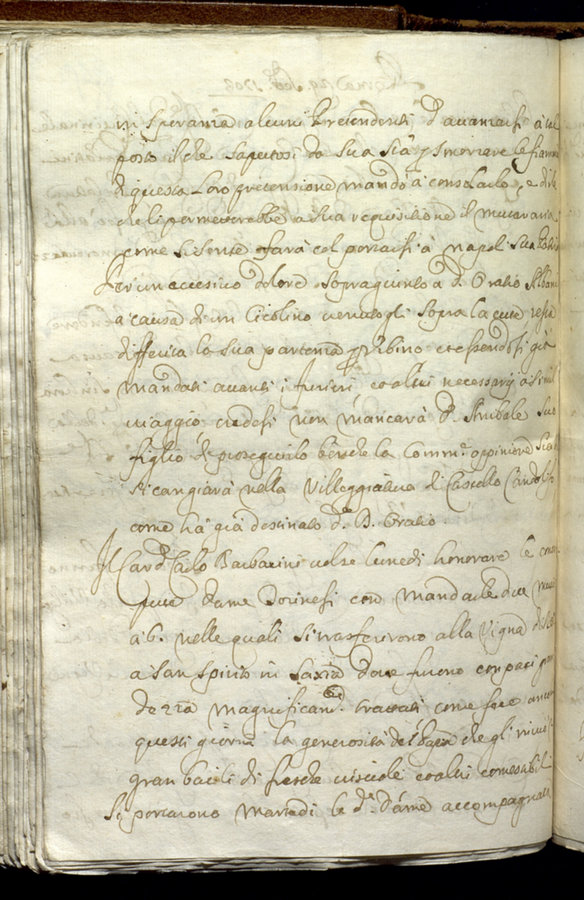 in speranza alcuni Pretendenti d'avanzarsi à tal
posto il che saputosi da Sua Stà p smorzare le fiamme
di questa loro pretensione mandò à consolarlo, e
che li permetterebbe a sua requisitione il
come si sente farà col portarsi à Napoli sua
Per un eccessivo dolore sopragiunto a D. Oratio Albani
a causa di un Cicolino venutogli sopra la cute resta
differita la sua partenza p Urbino et essendosi già
mandati avanti i furieri et altri necessarij à simil
viaggio credesi non mancarà D. Anibale suo
figlio di proseguirlo benche la Comm.e oppinione
si cangiarà nella Villeggiatura di Castello Gandolfo
come hà già destinato d.o D. Oratio
Il Card. Carlo Barbarini volse lunedi honorare le
Dame Torinesi con mandarle due mute
a 6. nelle quali si trasferirono alla Vigna
a San Spirito in Saxia dove furono con pari
dezza magnificam.te trattati come fece ancora
questi giorni la generosità che gl'inviò
gran bacili di fresche visciole et altri comestibili
Si portarono Martedi le d.e Dame accompagnate